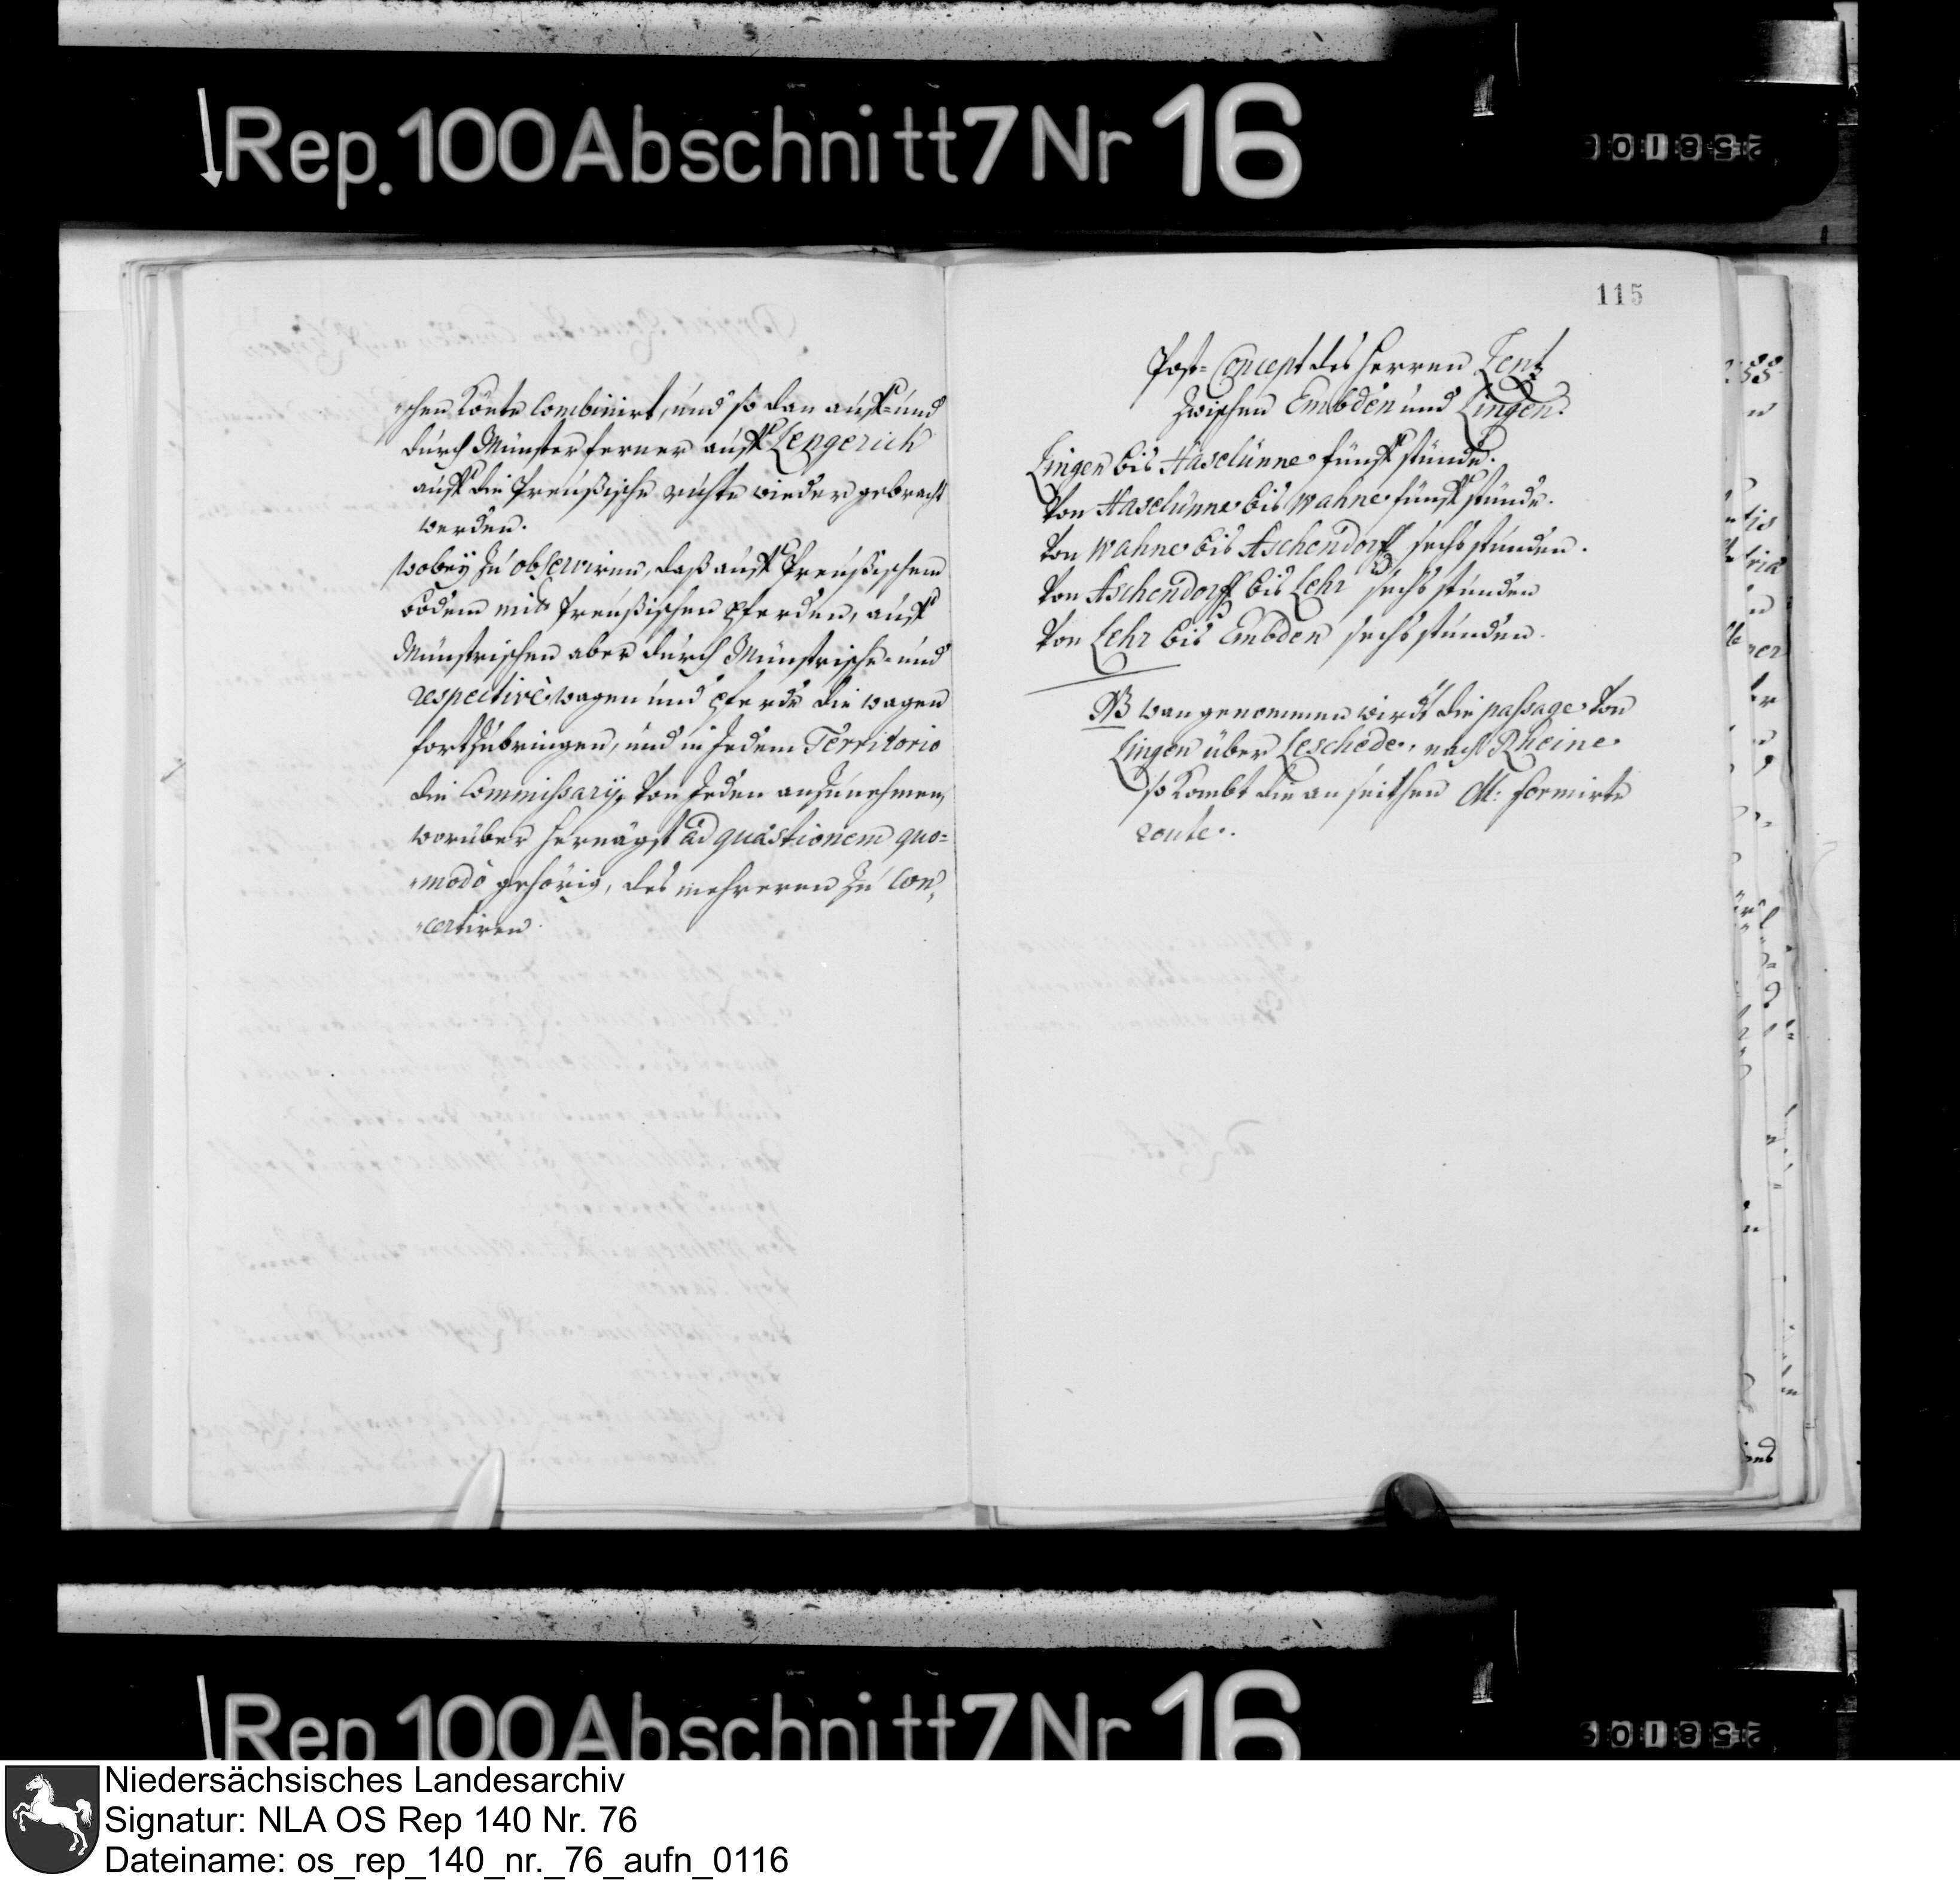 Rep. 100 Abschnitt 7 Nr 16
schen Route combinirt, und so dan auff- und
durch Münster ferner auff Lengerich
auff die Preußische rüchte wieder gebracht
werden.
Wobey zu observiren, daß auff Preußischem
bodem mit Preußischen pferden, auff
Münstrischen aber durch Münstrische- und
respectivè wagen und pferde die wagen
fortzubringen, und in Jedem Territorio
die Commissarij von Jeden anzunehmen,
worüber hernägst ad quaestionem quo=
modo gehörig, des mehreren zu con,
certiren.
115
Post-Concept des Herren Lentz
zwischen Embden und Lingen.
Lingen bis Haselünne fünff stunde.
Von Haselünne bis Wahne fünff stunde.
Von Wahne bis Aschendorff sechs stunden.
Von Aschendorff bis Lehr sechs stunden
Von Lehr bis Embden sechs stunden.
NB wan genommen wirdt die passage von
Lingen über Leschede, nach Rheine
so kombt die an seithen M: formirte
route.
Rep 100 Abschnitt 7 Nr 16
Niedersächsisches Landesarchiv
Signatur: NLA OS Rep 140 Nr. 76
Dateiname: os_rep_140_nr._76_aufn_0116